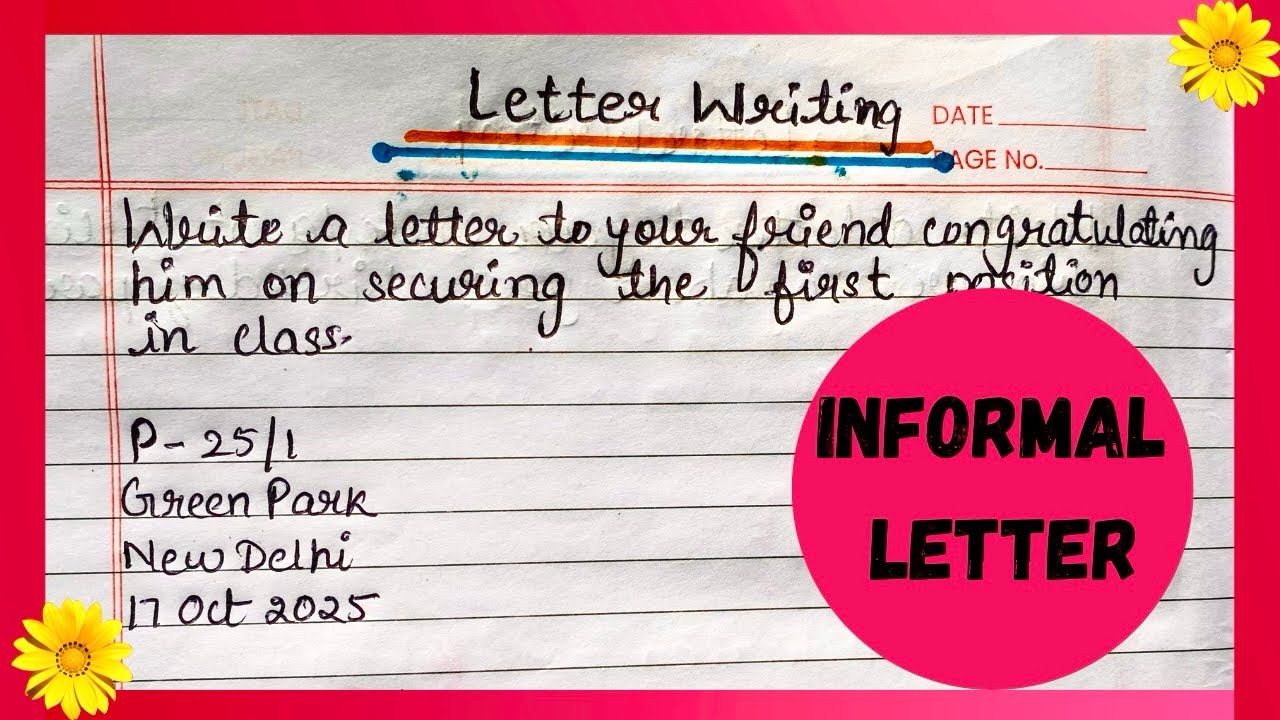 Letter Writing
DATE
PAGE No.
Write a letter to your friend congratulating
him on securing the first position
in class.
P-25/1
Green Park
New Delhi
17 Oct 2025
INFORMAL
LETTER